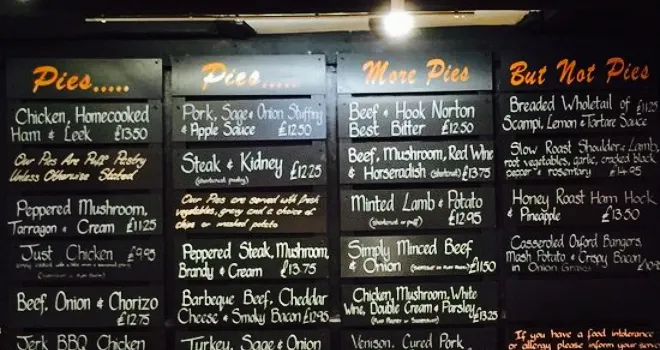 Pies.....
Chicken, Homecooked
Ham & Leek £13.50
Our Pies Are Puff Pastry
Unless Otherwise Stated
Peppered Mushroom,
Tarragon & Cream £11.25
Just Chicken £9.95
Beef, Onion & Chorizo
£12.75
Jerk BBQ Chicken
Pies.....
Pork, Sage & Onion Stuffing
& Apple Sauce £12.50
Steak & Kidney £12.25
(shortcrust pastry)
Our Pies are served with fresh
vegetables, gravy and a choice of
chips or mashed potato
Peppered Steak, Mushroom,
Brandy & Cream £13.75
Barbeque Beef, Cheddar
Cheese & Smoky Bacon £12.95
Turkey, Sage & Onion
More Pies
Beef & Hook Norton
Best Bitter £12.50
Beef, Mushroom, Red Wine
& Horseradish (shortcrust) £13.75
Minted Lamb & Potato
(shortcrust or puff) £12.95
Simply Minced Beef
& Onion £11.50
Chicken, Mushroom, White
Wine, Double Cream & Parsley
(Puff Pastry or Shortcrust) £13.25
Venison, Cured Pork,
But Not Pies
Breaded Wholetail of £11.25
Scampi, Lemon & Tartare Sauce
Slow Roast Shoulder Lamb,
root vegetables, garlic, cracked black
pepper & rosemary £14.95
Honey Roast Ham Hock
& Pineapple £13.50
Casseroled Oxford Bangers,
Mash Potato & Crispy Bacon
in Onion Gravy
If you have a food intolerance
or allergy please inform your server